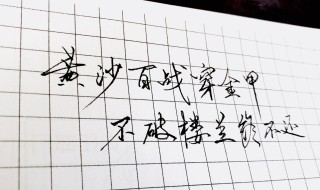 黄沙百战穿金甲
不破楼兰终不还